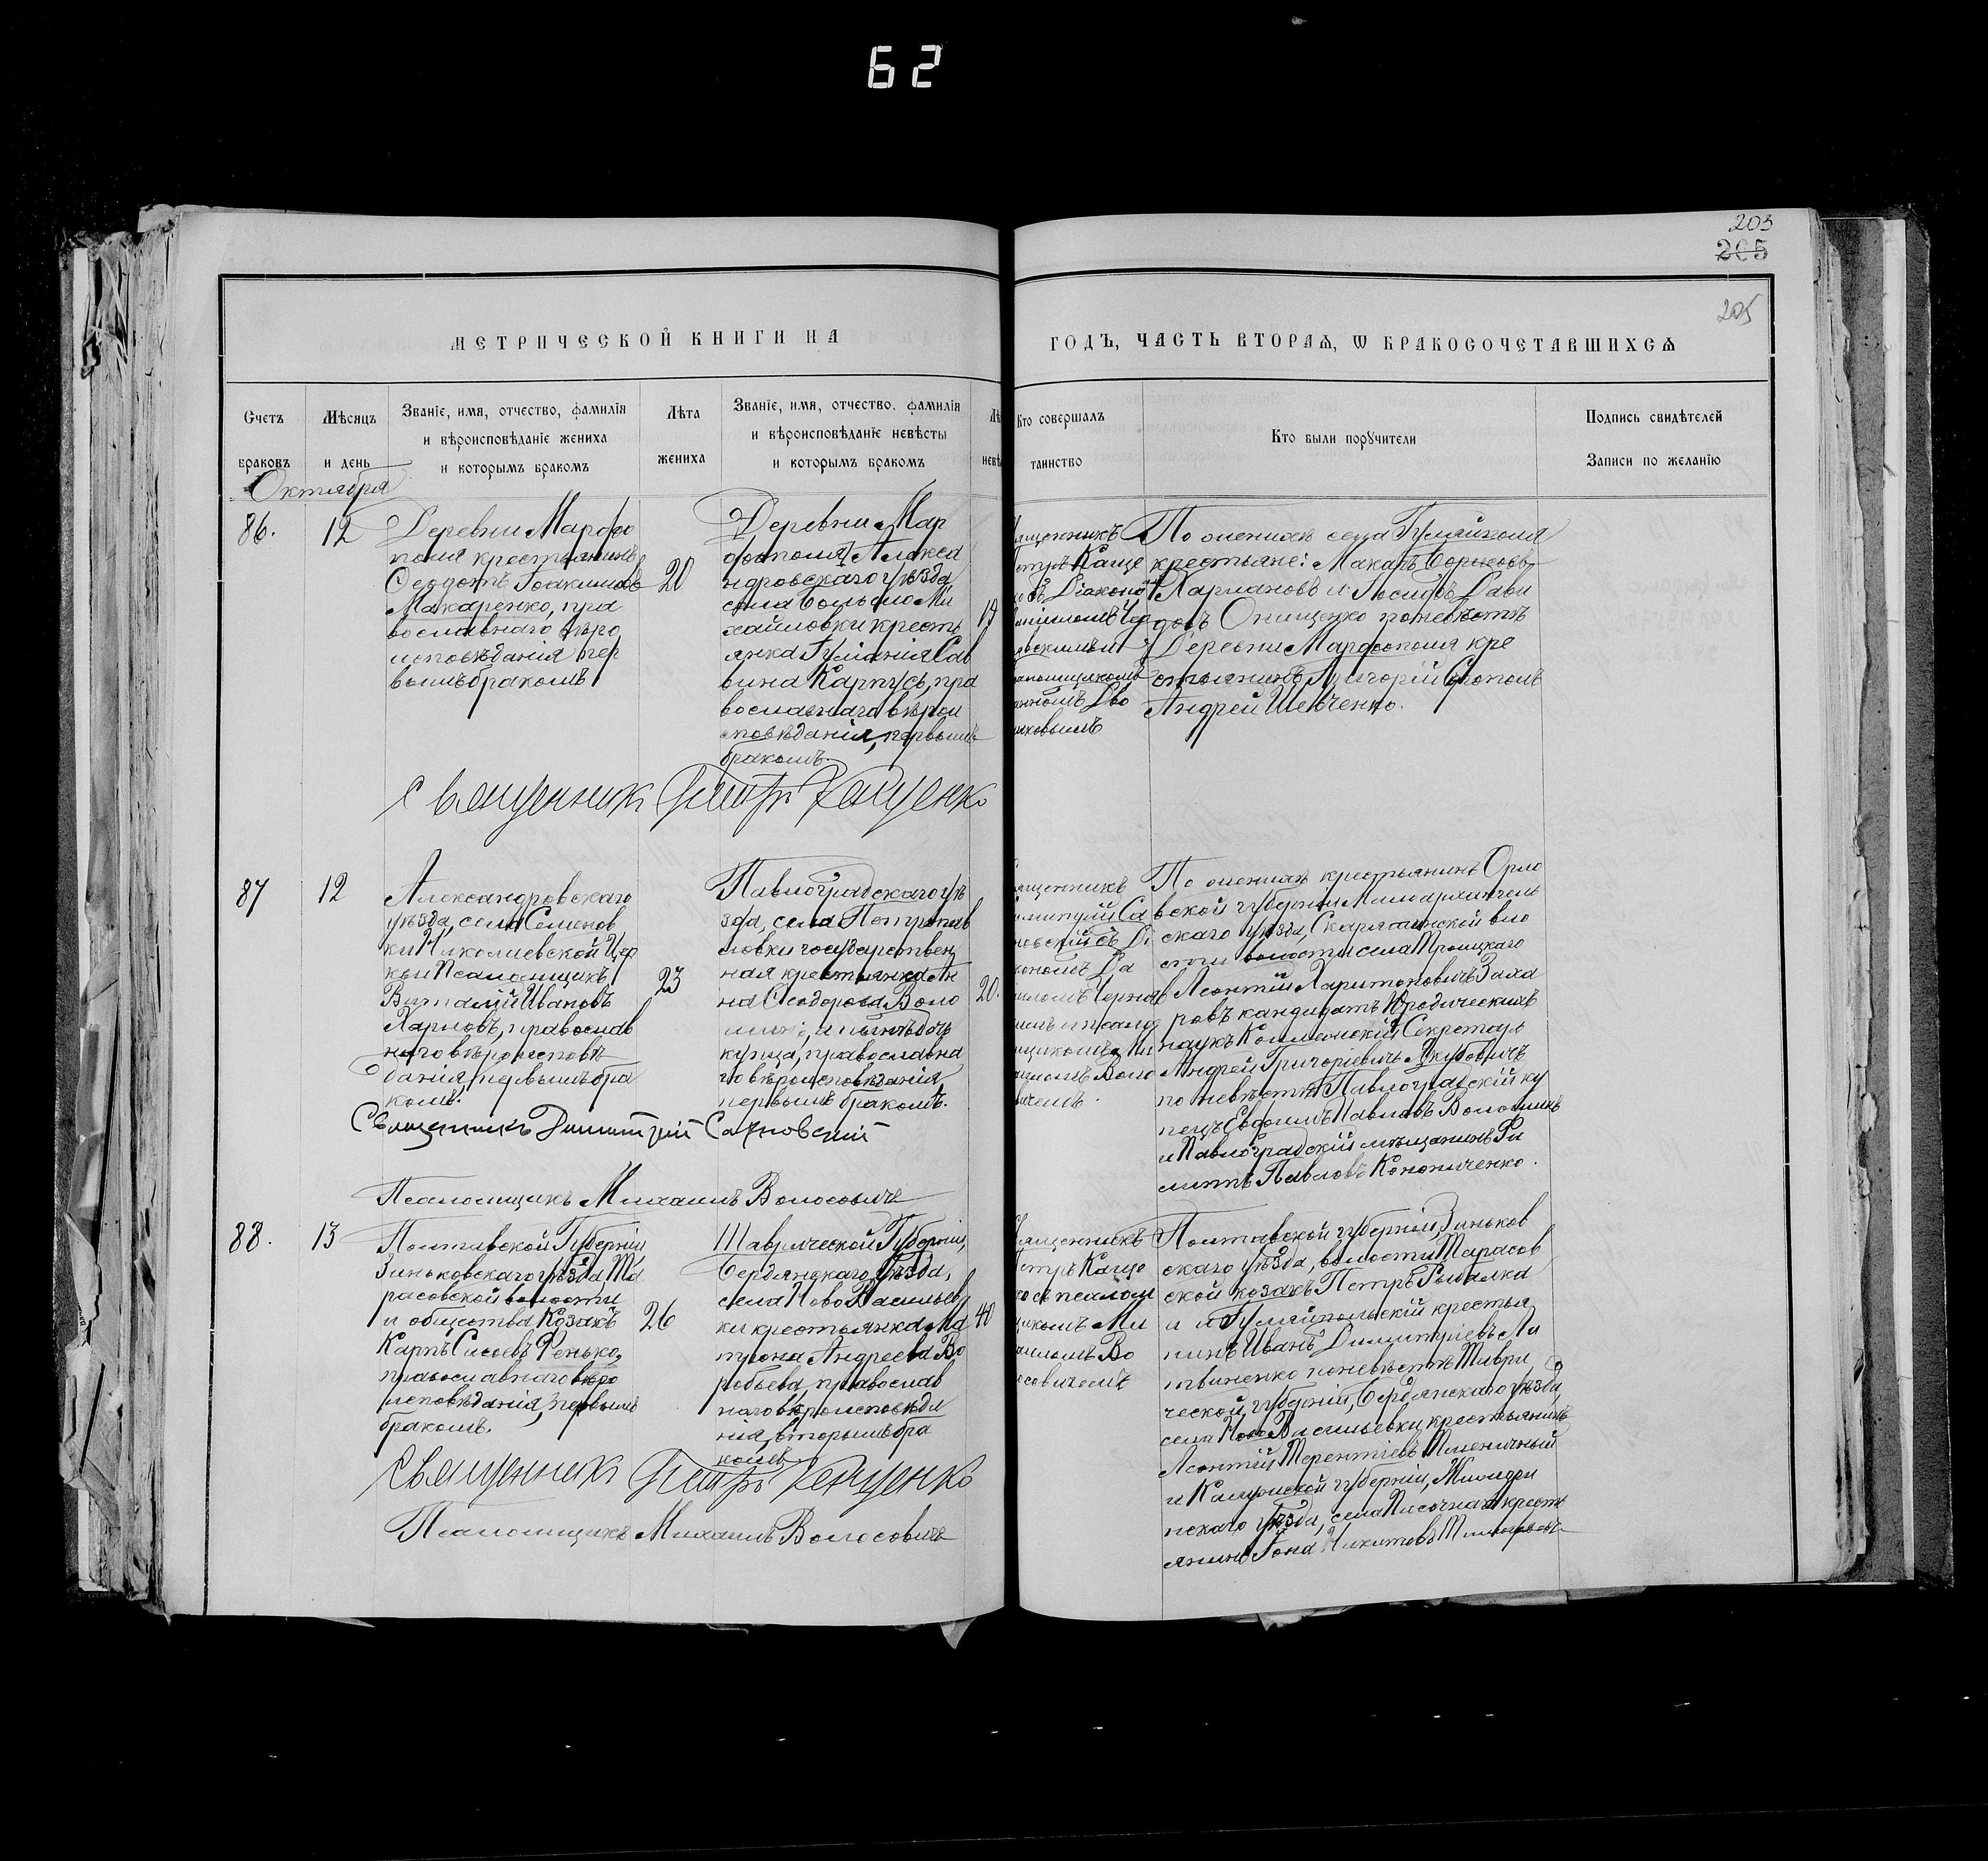 62
203
205
205
МЕТРИЧЕСКОЙ КНИГИ НА
ГОДЪ, ЧАСТЬ ВТОРАѦ, Ѡ БРАКОСОЧЕТАВШИХСѦ
Счетъ
браковъ
Мѣсяцъ
и день
Званіе, имя, отчество, фамилія
и вѣроисповѣданіе жениха
и которымъ бракомъ
Лѣта
жениха
Званіе, имя, отчество, фамилія
и вѣроисповѣданіе невѣсты
и которымъ бракомъ
Лѣ
невѣ
Кто совершалъ
таинство
Кто были поручители
Подпись свидѣтелей
Записи по желанію
Октября
86.
12
Деревни Марфо
поля крестьянинъ
Ѳеодотъ Іоакимовъ
Макаренко, пра
вославнаго вѣро
исповѣданія пер
вымъ бракомъ
20
Деревни Мар
фополя Алекса
ндровскаго уѣзда
села Больше Ми
хайловки кресть
янка Іуліанія Сав
вина Карпусь, пра
вославнаго вѣрои
сповѣданія, первымъ
бракомъ.
19
ященникъ
етръ Каще
ко съ Діакono
аніиломъ Чер
явскимъ и
саломщикомъ
Дво
никовымъ
По женихѣ села Гуляйполя
крестьяне: Макаръ
и Іосифъ Дави
довъ Онищенко по невѣстѣ
Деревни Марфополя кре
стьянинъ Григорій
Андрей Шевченко.
Священникъ Петръ Кащенко
87
12
Александровскаго
уѣзда, села Семенов
ки Николаевской Цер
кви Псаломщикъ
Виталій Ивановъ
Ларповъ, православ
наго вѣроисповѣ
данія, первымъ бра
комъ.
23
Павлоградскаго уѣ
зда, села Петропав
ловки государствен
ная крестьянка Ан
на Ѳеодорова Воло
а нынѣ дочь
купца, православна
го вѣроисповѣданія
первымъ бракомъ.
20.
ященникъ
имитрій Са
новскій съ Ді
кономъ Да
ниломъ Черняв
имъ и псало
щикомъ Ми
аиломъ Воло
вичемъ.
По женихѣ крестьянинъ Орло
вской губерніи Малоархангель
скаго уѣзда,
волости села Троицкаго
Леонтій Харитоновичъ Заха
ровъ кандидатъ Юридическихъ
наукъ Коллежскій Секретарь
Андрей Григорьевичъ Якубовичъ
по невѣстѣ Павлоградскій ку
пецъ Евфимъ Павловъ Волошинъ
и Павлоградскій мѣщанинъ Фи
липпъ Павловъ Кононченко.
Священникъ Димитрій Сахновскій
Псаломщикъ Михаилъ Волосовичъ
88.
13
Полтавской Губерніи,
Зиньковскаго уѣзда, Та
расовской волости
и общества Козакъ
Карпъ Сисоевъ Ренько,
православнаго вѣро
исповѣданія, первымъ
бракомъ.
26
Таврической Губерніи,
Бердянскаго уѣзда,
села Ново Васильев
ки крестьянка Ма
трона Андреева Во
робьева православ
наго вѣроисповѣда
нія, вторымъ бра
комъ
40
вященникъ
Петръ Каще
ко съ псалом
щикомъ Ми
аиломъ Во
совичемъ
Полтавской губерніи, Зиньков
скаго уѣзда, волости Тарасов
ской козакъ Петръ Рыбалка
и Гуляйпольскій крестья
нинъ Иванъ Димитріевъ Ли
твиненко по невѣстѣ Таври
ческой губерніи, Бердянскаго уѣзда
села Ново Васильевки, крестьянинъ
Леонтій Терентіевъ Пшеничный
и Калужской губерніи, Жиздри
нскаго уѣзда, села Песочная крестья
янинъ Іона Никитовъ
Священникъ Петръ Кащенко
Псаломщикъ Михаилъ Волосовичъ